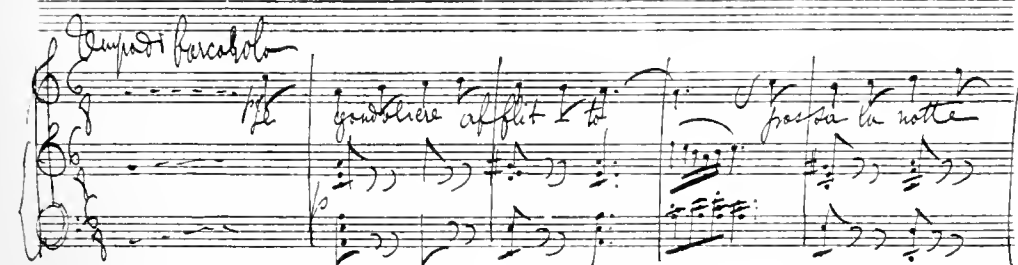 Tempo di barcarola
gondoliere afflit-to passa la notte
p